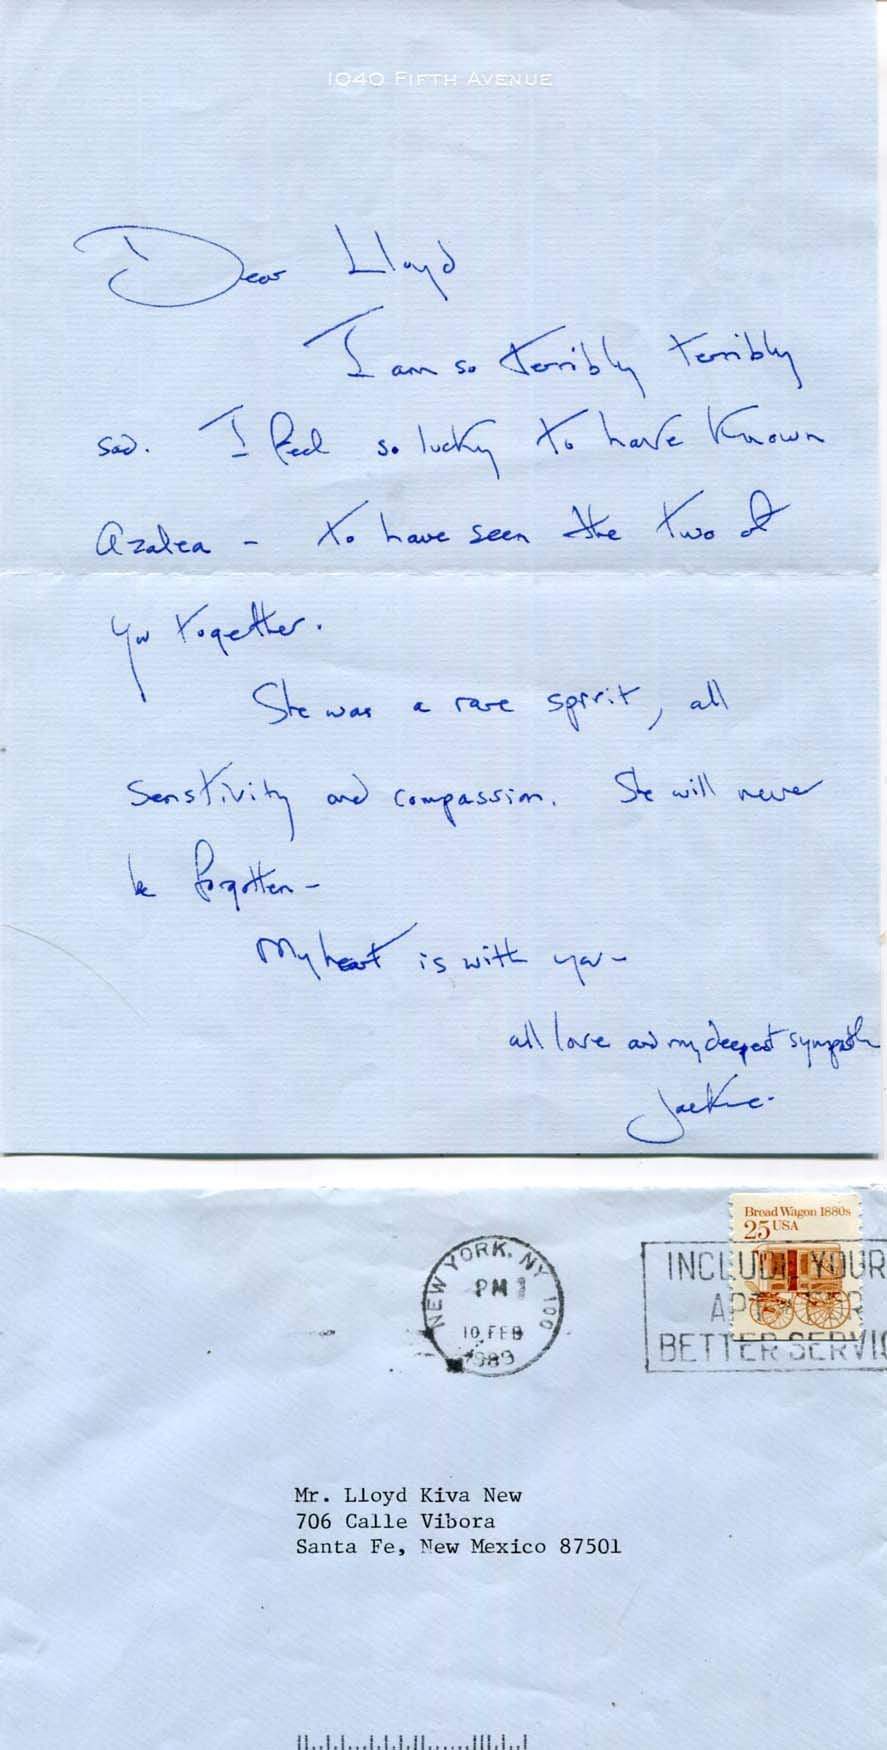 1040 FIFTH AVENUE
Dear Lloyd
I am so terribly terribly
sad. I feel so lucky to have known
Azalea - to have seen the two of
you together.
She was a rare spirit, all
senstivity and compassion. She will never
be forgotten-
My heart is with you-
all love and my deepest sympathy
Jackie.
Bread Wagon 1880s
25 USA
NEW YORK, NY 100
PM
10 FEB
1989
INCLUDE YOUR
BETTER SERVIC
Mr. Lloyd Kiva New
706 Calle Vibora
Santa Fe, New Mexico 87501